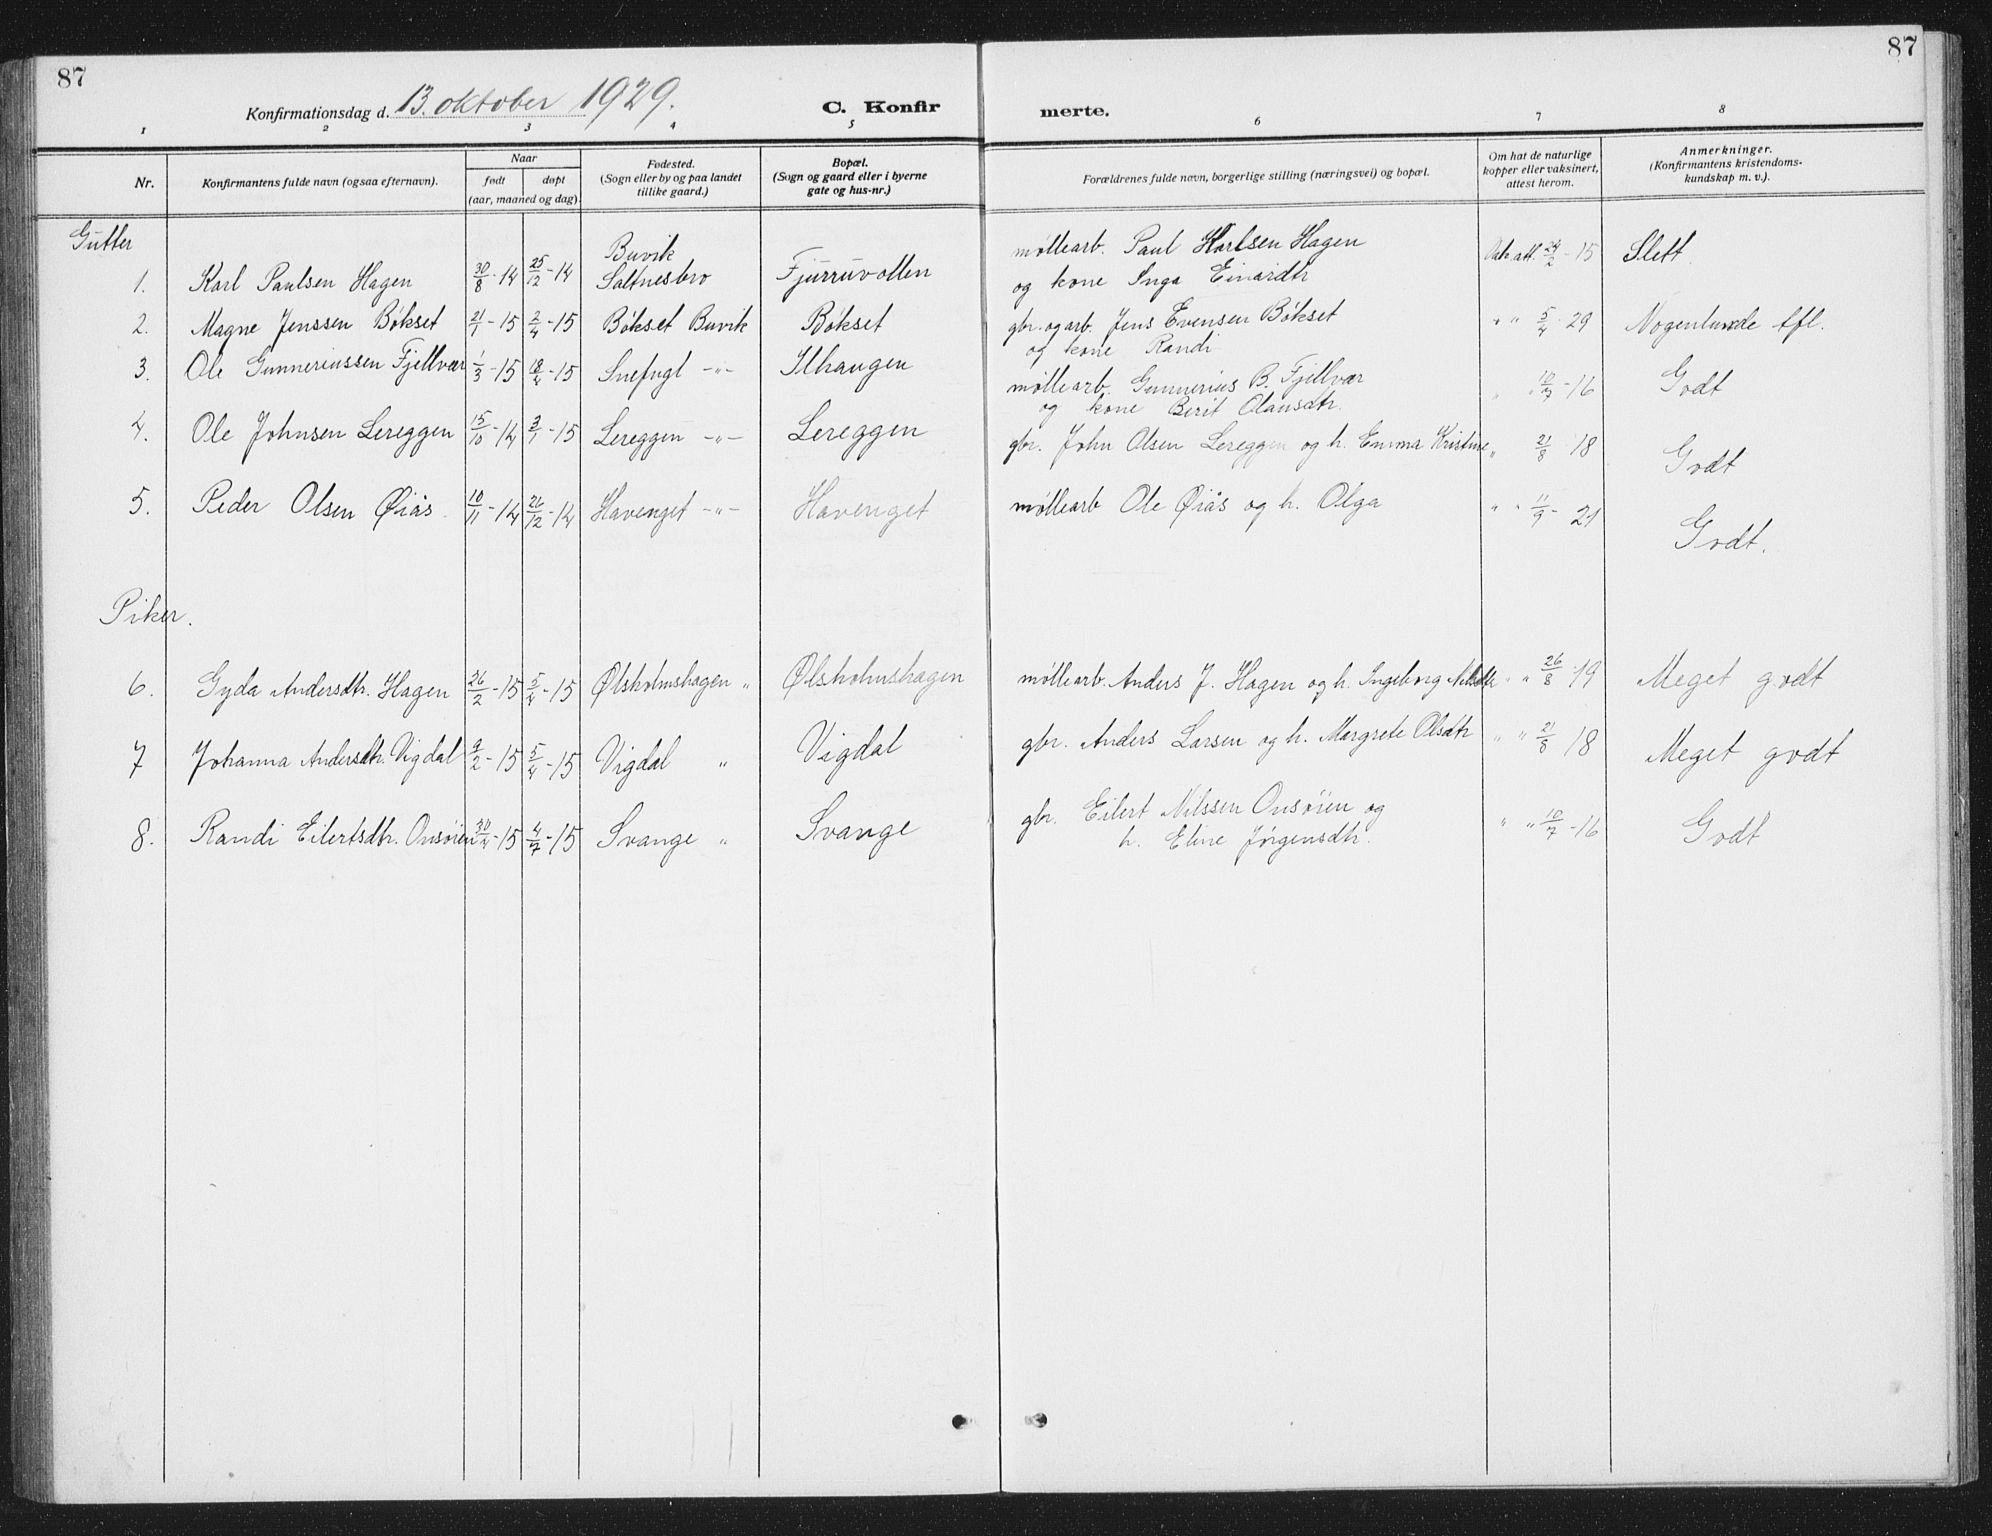 87
87
Konfirmationsdag d. 13. oktober 1929.
C. Konfir
merte.
1 2 3 4 5 6 7 8
Nr.
Konfirmantens fulde navn (ogsaa efternavn).
Naar
født døpt
(aar, maaned og dag)
Fødested.
(Sogn eller by og paa landet
tillike gaard.)
Bopæl.
(Sogn og gaard eller i byerne
gate og hus-nr.)
Forældrenes fulde navn, borgerlige stilling (næringsvei) og bopæl.
Om hat de naturlige
kopper eller vaksinert,
attest herom.
Anmerkninger.
(Konfirmantens kristendoms-
kundskap m. v.).
Gutter
Buvik
møllearb. Paul Karlsen Hagen
1. Karl Paulsen Hagen 30/8-14 25/12-14 Saltnesbro Fjurruvollen og kone Inga Einardtr att. 24/2-15 Slett.
2. Magne Jenssen Bökset 21/1-15 2/4-15 Bökset Buvik Bökset gbr. og arb. Jens Evensen Bökset " " 5/4-29 Nogenlunde tfl.
og kone Randi
3. Ole Gunneriussen Fjellvær 1/3-15 18/4-15 Snefugl -"- Ilhaugen møllearb. Gunnerius B. Fjellvær " " 10/7-16 Godt
og kone Berit Olausdtr.
4. Ole Johnsen Lereggen 15/10-14 3/1-15 Lereggen -"- Lereggen gbr. John Olsen Lereggen og h. Emma Kristine " 21/8 18 Godt
5. Peder Olsen Øiås 10/11-14 26/12-14 Havenget -"- Havenget møllearb Ole Øiås og h. Olga " " 11/9-21 Godt.
Piker.
6. Gyda Andersdtr. Hagen 26/2-15 5/4-15 Ølsholmshagen " Ølsholmshagen møllearb. Anders J. Hagen og h. Ingeborg " " 26/8-19 Meget godt
7 Johanna Andersdtr. Vigdal 9/2-15 5/4-15 Vigdal " Vigdal gbr. Anders Larsen og h. Margrete Olsdtr " " 21/8 18 Meget godt
gbr. Eilert Nilssen Onsöien og
8. Randi Eilertsdtr. Onsöien -15 4/7-15 Svange " Svange h. Eline Jörgensdtr. " " 10/7-16 Godt